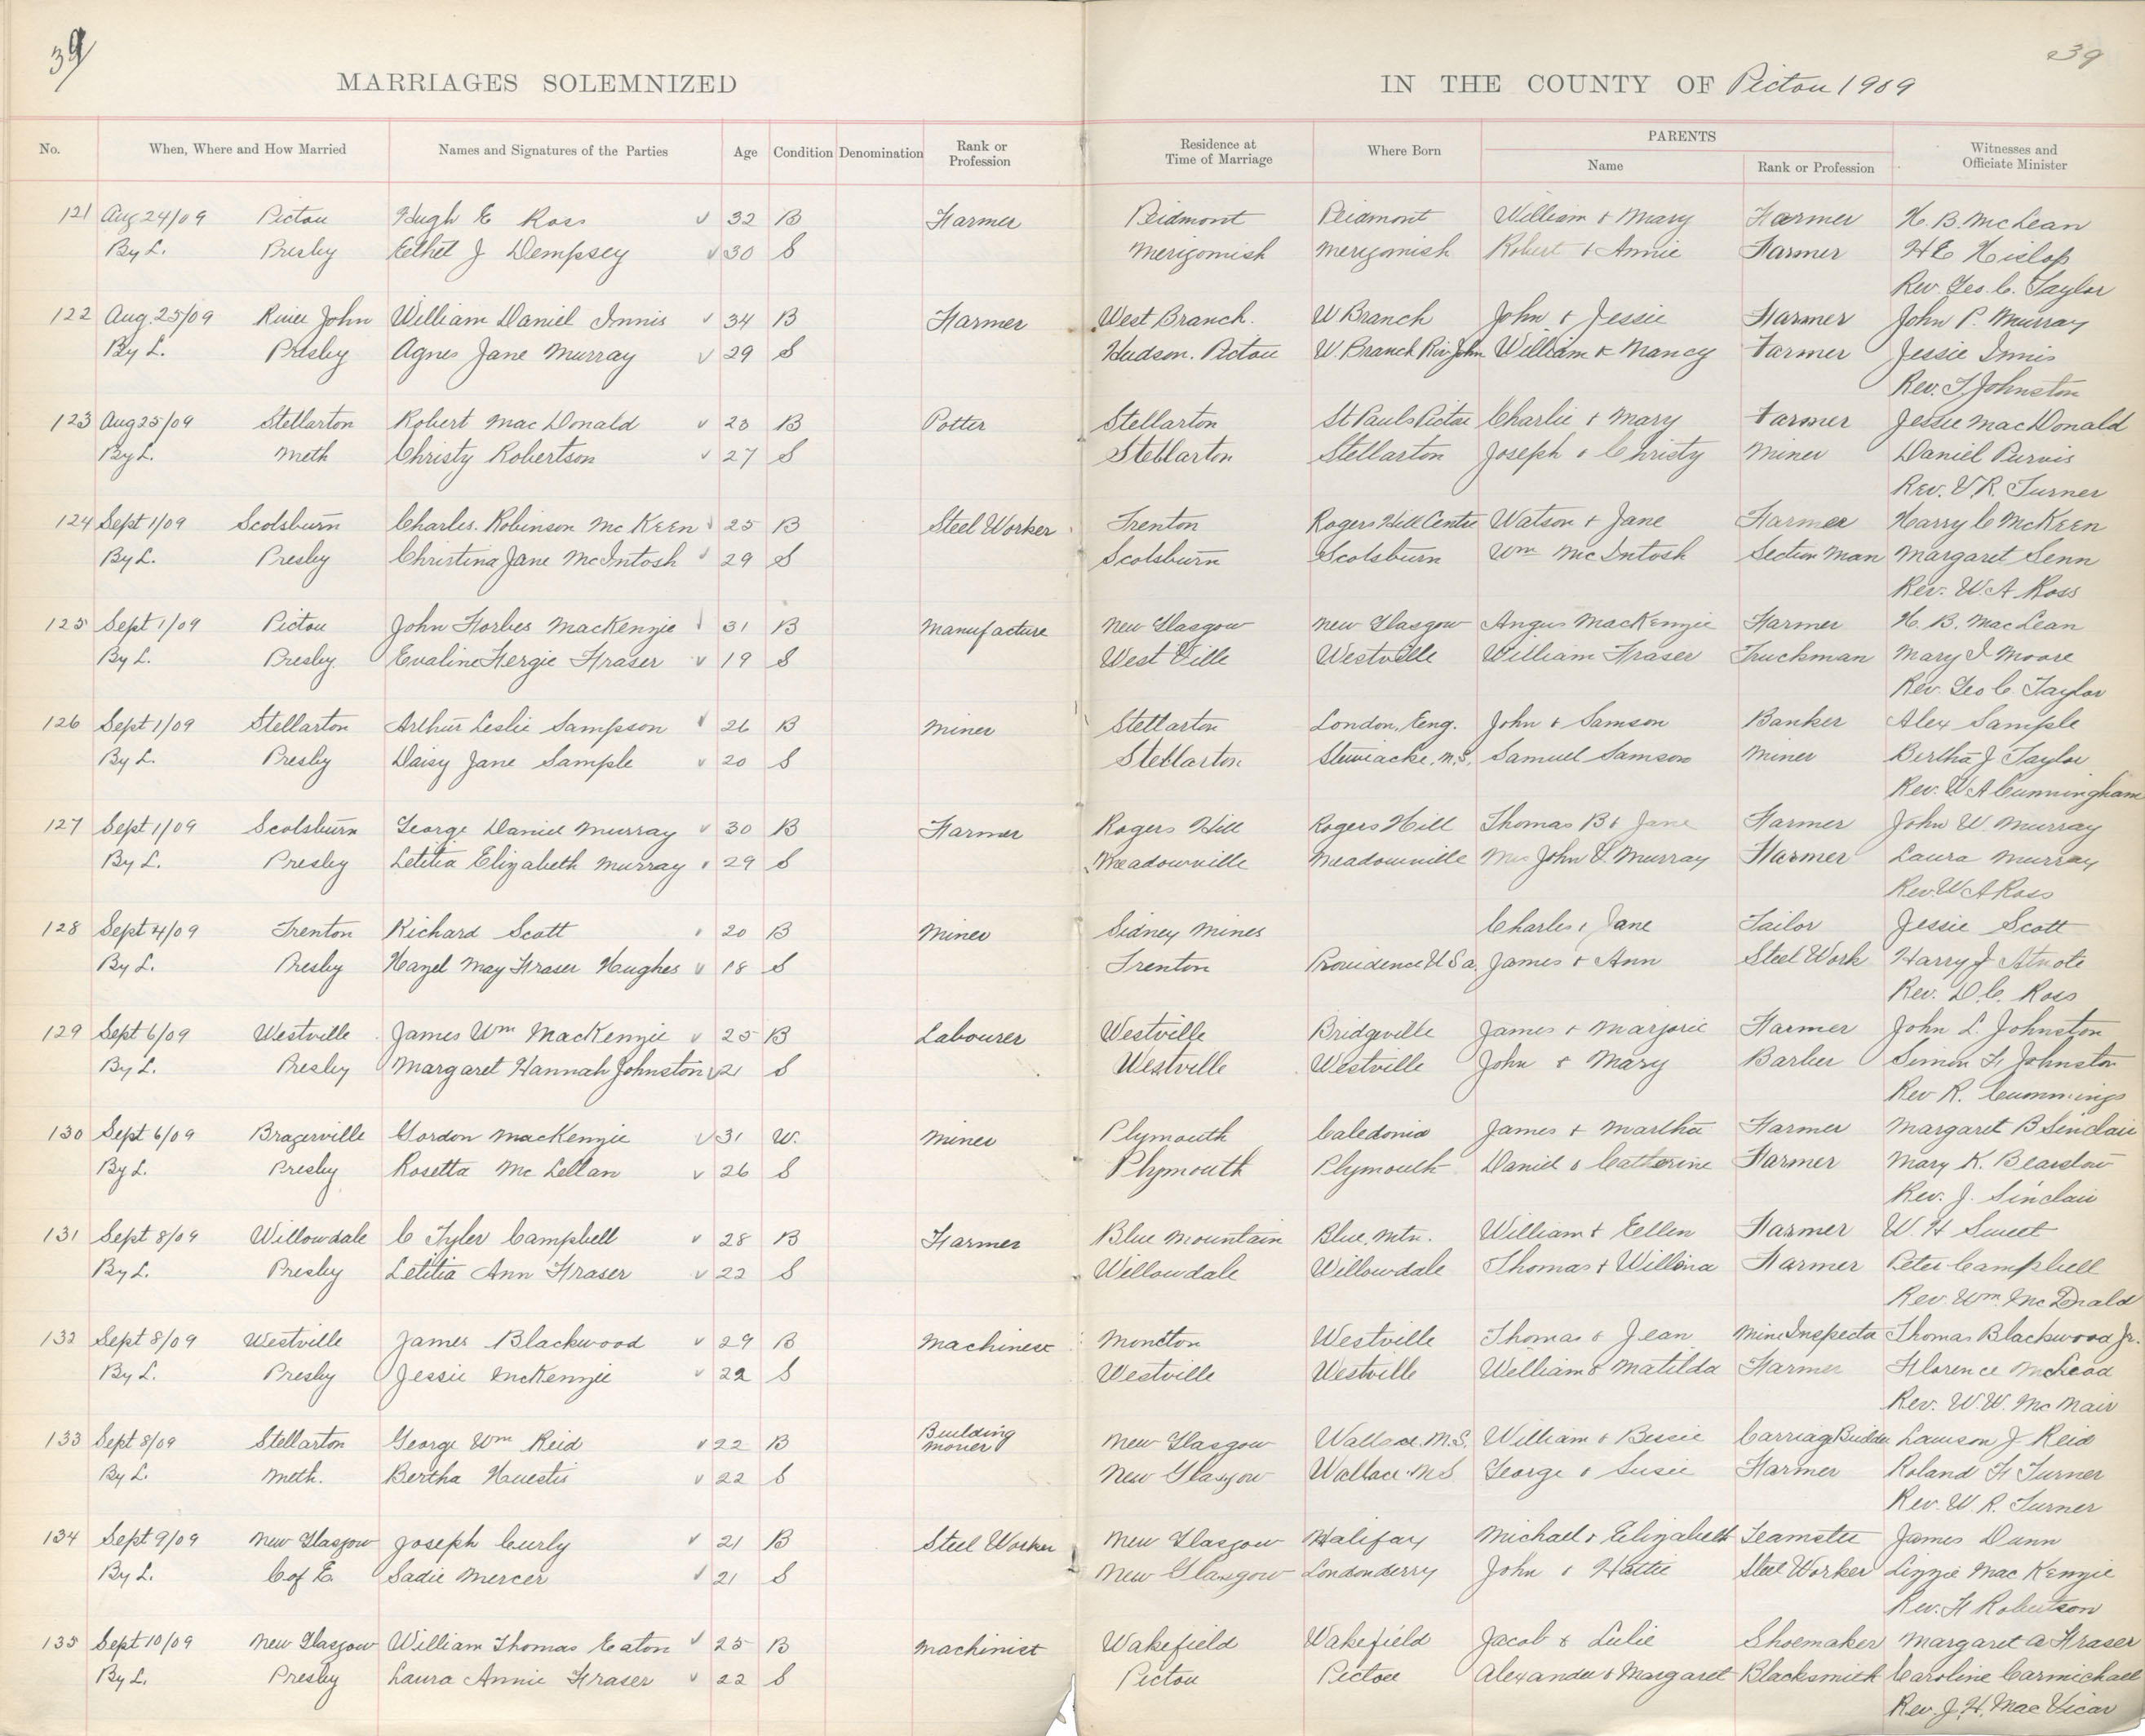 39 39
MARRIAGES SOLEMNIZED IN THE COUNTY OF Pictou 1909
No. When, Where and How Married Names and Signatures of the Parties Age Condition Denomination Rank or Profession Residence at Time of Marriage Where Born PARENTS Name Rank or Profession Witnesses and Officiate Minister
121 Aug 24/09 Pictou Hugh E Ross 32 B Farmer Peidmont Peidmont William & Mary Farmer H. B. McLean
By L. Presby Eethel J Dempsey 30 S Merigomish Merigomish Robert & Annie Farmer H E Hislop
Rev. Geo. C. Taylor
122 Aug. 25/09 River John William Daniel Innis 34 B Farmer West Branch. W Branch John & Jessie Farmer John P. Murray
By L. Presby Agnes Jane Murray 29 S Hudson. Pictou W. Branch Riv John William & Nancy Farmer Jessie Innis
Rev. T Johnston
123 Aug 25/09 Stellarton Robert MacDonald 23 B Potter Stellarton St Pauls Pictou Charlie & Mary Farmer Jessie MacDonald
By L. Meth Christy Robertson 27 S Stellarton Stellarton Joseph & Christy Miner Daniel Purvis
Rev. V. R. Turner
124 Sept 1/09 Scotsburn Charles. Robinson McKeen 25 B Steel Worker Trenton Rogers Hill Centre Watson & Jane Farmer Harry C McKeen
By L. Presby Christina Jane McIntosh 29 S Scotsburn Scotsburn Wm McIntosh Section Man Margaret Senn
Rev. W. A Ross
125 Sept 1/09 Pictou John Forbes MacKenzie 31 B Manufacture New Glasgow New Glasgow Angus MacKenzie Farmer H. B. MacLean
By L. Presby. Evaline Fergie Fraser 19 S West Ville Westville William Fraser Truckman Mary I Moore
Rev. Geo C. Taylor
126 Sept 1/09 Stellarton Arthur Leslie Sampson 26 B Miner Stellarton London, Eeng. John & Samson Banker Alex Sample
By L. Presby Daisy Jane Sample 20 S Stellarton Stewiacke. N.S. Samuel Samson Miner Bertha J Taylor
Rev. W A Cunningham
127 Sept 1/09 Scotsburn George Daniel Murray 30 B Farmer Rogers Hill Rogers Hill Thomas B & Jane Farmer John W. Murray
By L. Presby Letitia Elizabeth Murray 29 S Meadowville Meadowville Mrs John D. Murray Farmer Laura Murray
Rev. W A Ross
128 Sept 4/09 Trenton Richard Scott 20 B Miner Sidney Mines Charles & Jane Tailor Jessie Scott
By L. Presby Hazel May Fraser Hughes 18 S Trenton Providence U S a. James & Ann Steel Work Harry J
Rev. D. C. Ross
129 Sept 6/09 Westville James Wm MacKenzie 25 B Labourer Westville Bridgeville James & Marjorie Farmer John L. Johnston
By L. Presby Margaret Hannah Johnston 21 S Westville Westville John & Mary Barber Simon F Johnston
Rev R. Cummings
130 Sept 6/09 Bragerville Gordon MacKenzie 31 W. Miner Plymouth Caledonia James & Martha Farmer Margaret B Sinclair
By L. Presby Rosetta McLellan 26 S Plymouth Plymouth Daniel & Catherine Farmer Mary K. Bearstow
Rev. J. Sinclair
131 Sept 8/09 Willowdale C Tyler Campbell 28 B Farmer Blue Mountain Blue. Mtn. William & Eellen Farmer W. H Sweet
By L. Presby Letitia Ann Fraser 22 S Willowdale Willowdale Thomas & Willena Farmer Peter Campbell
Rev. Wm. McDonald
132 Sept 8/09 Westville James Blackwood 29 B Machinest Moncton Westville Thomas & Jean Mine Inspecta Thomas Blackwood Jr.
By L. Presby Jessie McKenzie 22 S Westville Westville William & Matilda Farmer Florence McLeod
Rev. W. W. McNair
133 Sept 8/09 Stellarton George Wm Reid 22 B Building Mover New Glasgow Wallace. N.S. William & Bessie Carriag Builder Lawson J Reid
By L. Meth. Bertha Huestis 22 S New Glasgow Wallace N.S. George & Susie Farmer Roland F Turner
Rev. W R. Turner
134 Sept 9/09 New Glasgow Joseph Curly 21 B Steel Worker New Glasgow Halifax Michael & Elizabeth Teamster James Dunn
By L. C of E. Sadie Mercer 21 S New Glasgow Londonderry John & Hattie Steel Worker Lizzie MacKenzie
Rev. F Robertson
135 Sept 10/09 New Glasgow William Thomas Eaton 25 B Machinist Wakefield Wakefield Jacob & Lulie Shoemaker Margaret A Fraser
By L. Presby Laura Annie Fraser 22 S Pictou Pictou Alexander & Margaret Blacksmith Caroline Carmichael
Rev. J. H. MacVicar